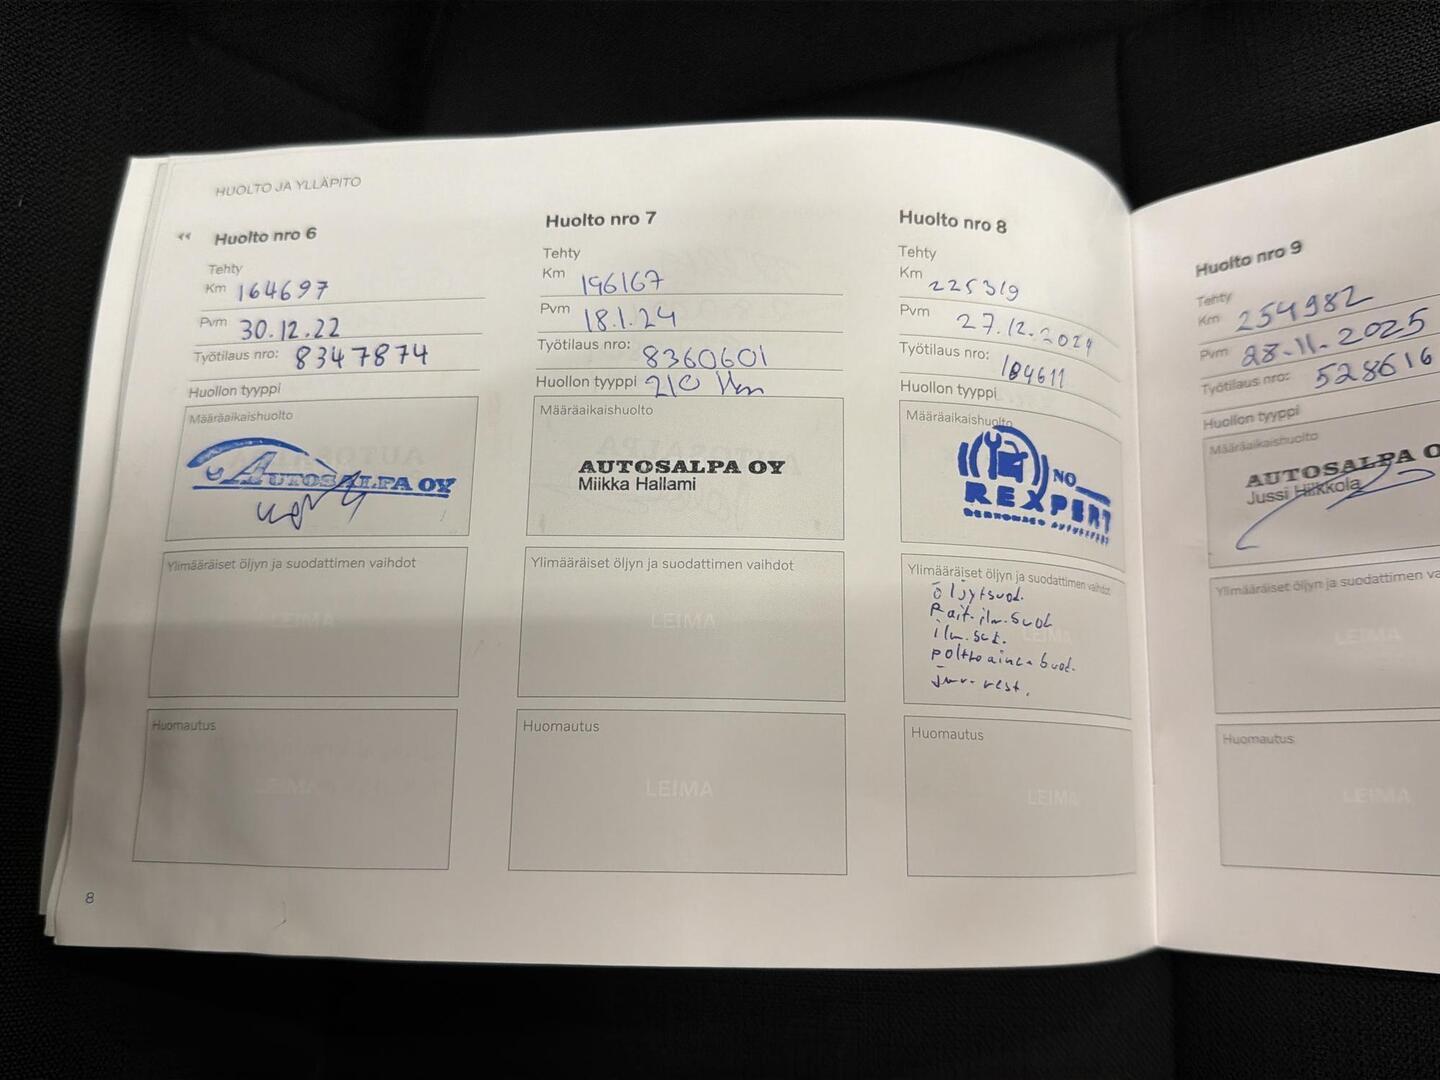 HUOLTO JA YLLÄPITO
Huolto nro 6
Tehty
Km 164697
Pvm 30.12.22
Työtilaus nro: 8347874
Huollon tyyppi
Määräaikaishuolto
AUTOSALPA OY
Ylimääräiset öljyn ja suodattimen vaihdot
LEIMA
Huomautus
LEIMA
8
Huolto nro 7
Tehty
Km 196167
Pvm 18.1.24
Työtilaus nro: 8360601
Huollon tyyppi 210 tkm
Määräaikaishuolto
AUTOSALPA OY
Miikka Hallami
Ylimääräiset öljyn ja suodattimen vaihdot
LEIMA
Huomautus
LEIMA
Huolto nro 8
Tehty
Km 225319
Pvm 27.12.2024
Työtilaus nro: 104611
Huollon tyyppi
Määräaikaishuolto
NO
REXPERT
Ylimääräiset öljyn ja suodattimen vaihdot
öljytsuod.
Rait.ilm.suod
ilm.suod.
polttoaine suod.
jarr. nest.
LEIMA
Huomautus
LEIMA
Huolto nro 9
Tehty
Km 254982
Pvm 28-11-2025
Työtilaus nro: 528616
Huollon tyyppi
Määräaikaishuolto
AUTOSALPA O
Jussi Hiikkola
Ylimääräiset öljyn ja suodattimen va
LEIMA
Huomautus
LEIMA